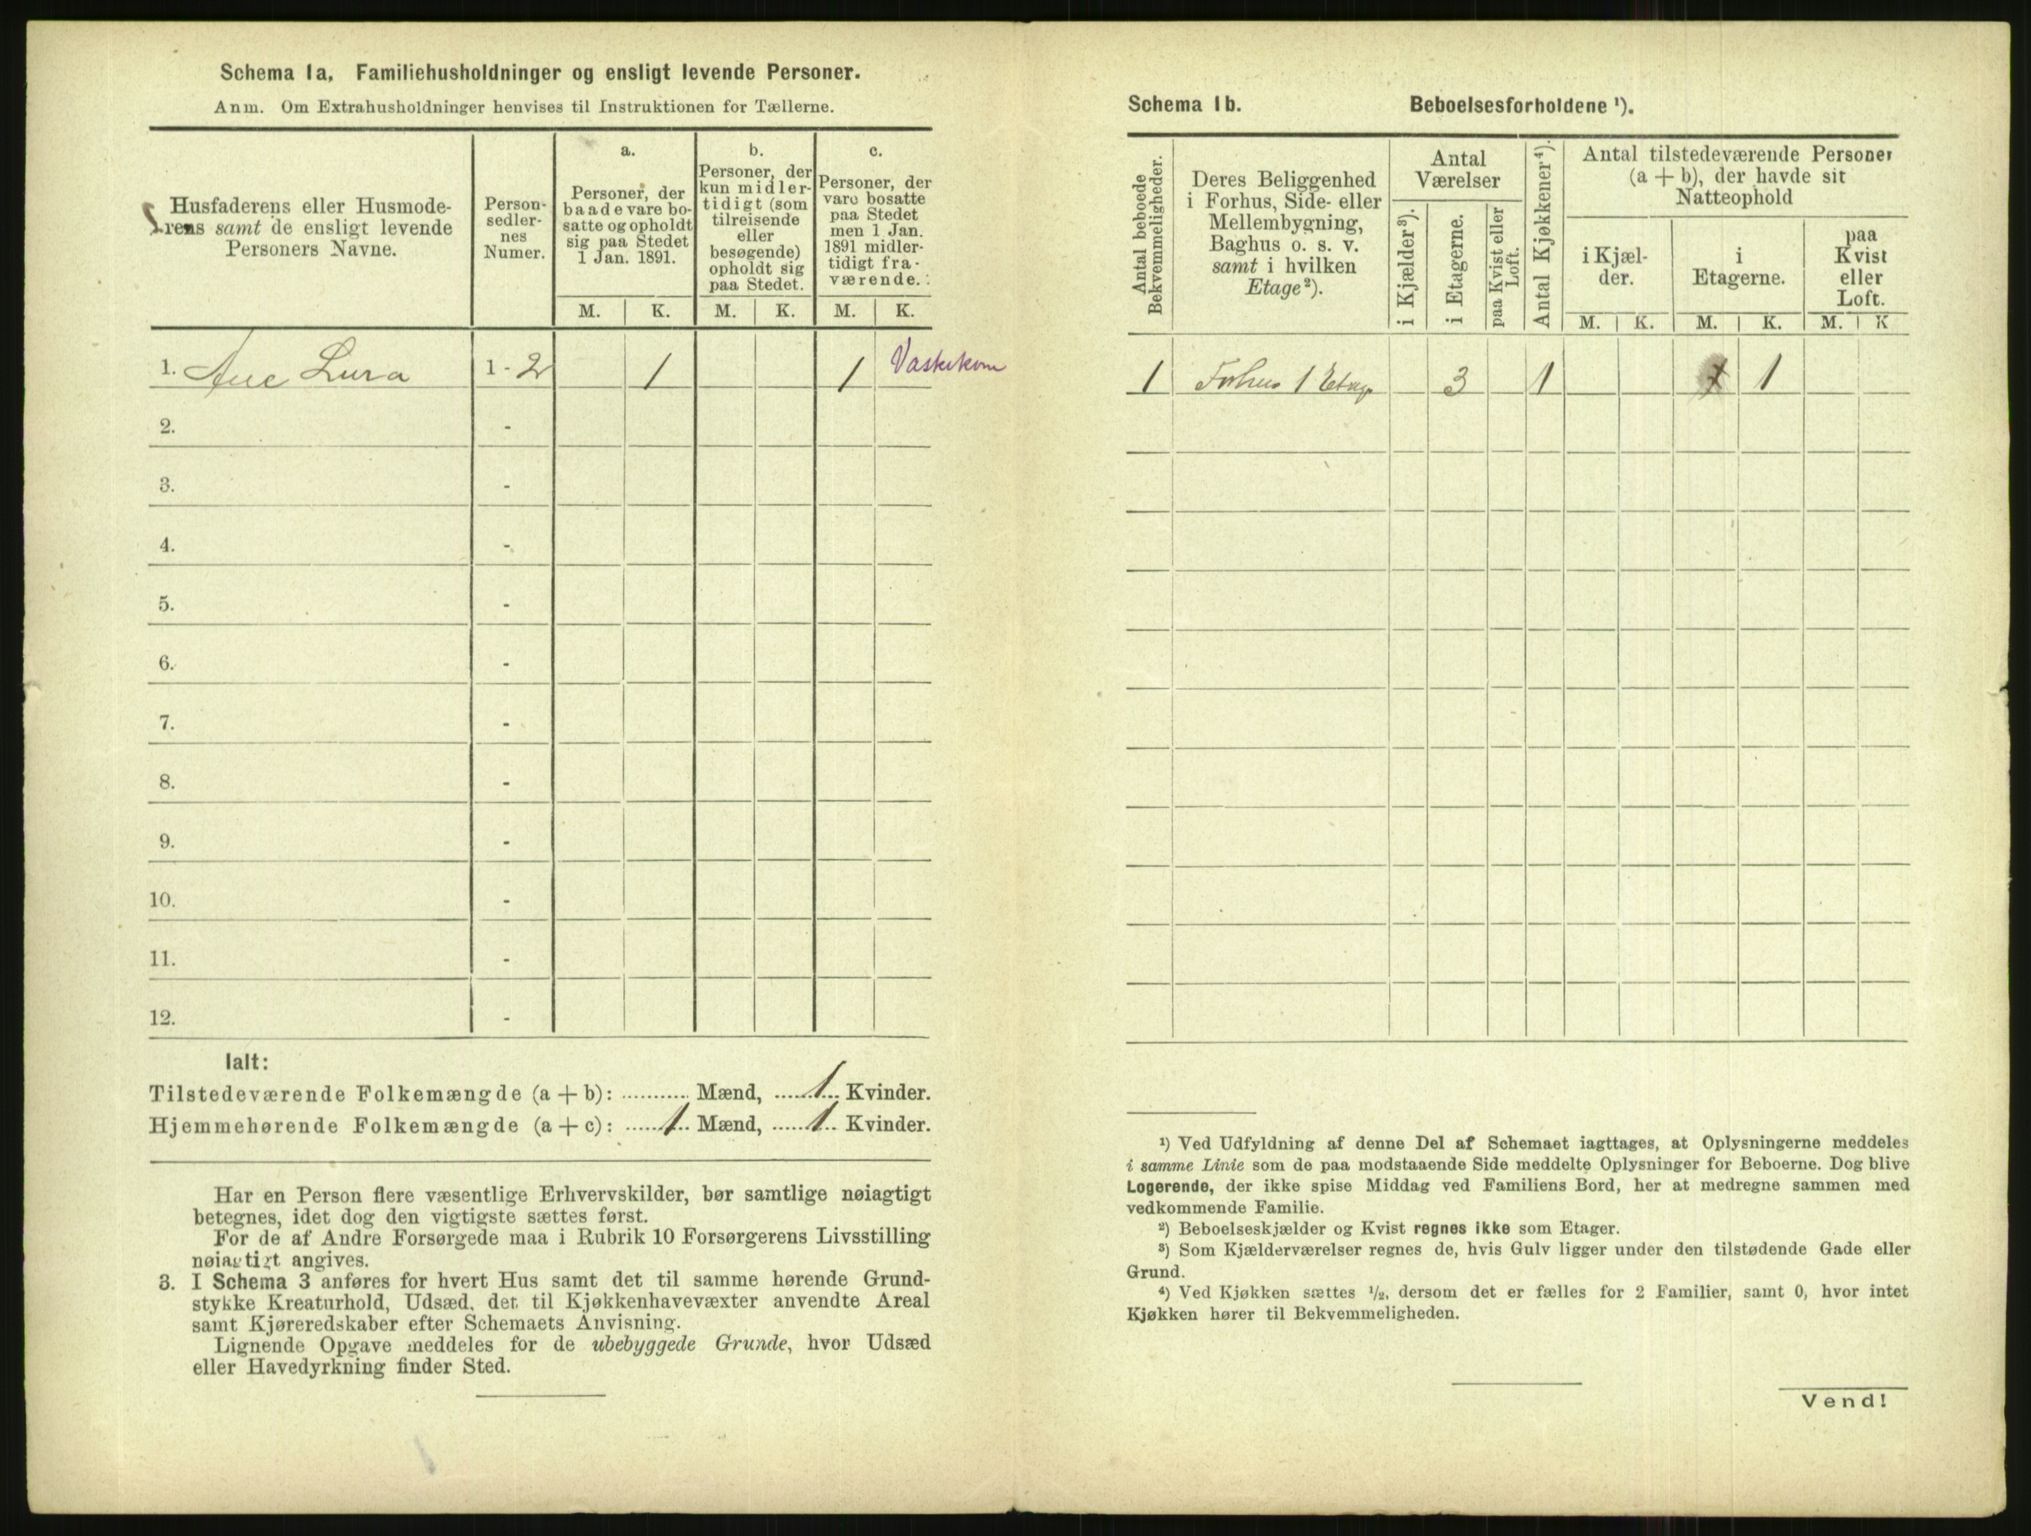 Schema 1a. Familiehusholdninger og ensligt levende Personer.
Anm. Om Extrahusholdninger henvises til Instruktionen for Tællerne.
Husfaderens eller Husmode-
rens samt de ensligt levende
Personers Navne.
Person-
sedler-
nes
Numer.
a.
Personer, der
baade vare bo-
satte og opholdt
sig paa Stedet
1 Jan. 1891.
b.
Personer, der
kun midler-
tidigt (som
tilreisende
eller
besøgende)
opholdt sig
paa Stedet.
c.
Personer, der
vare bosatte
paa Stedet
men 1 Jan.
1891 midler-
tidigt fra-
værende.
M. K. M. K. M. K.
1. Ane Lura 1 - 2 1 1
2. -
3. -
4. -
5. -
6. -
7. -
8. -
9. -
10. -
11. -
12. -
Ialt:
Tilstedeværende Folkemængde (a + b): ........... Mænd, 1 Kvinder.
Hjemmehørende Folkemængde (a + c): 1 Mænd, 1 Kvinder.
Har en Person flere væsentlige Erhvervskilder, bør samtlige nøiagtigt
betegnes, idet dog den vigtigste sættes først.
For de af Andre Forsørgede maa i Rubrik 10 Forsørgerens Livsstilling
nøiagtigt angives.
3. I Schema 3 anføres for hvert Hus samt det til samme hørende Grund-
stykke Kreaturhold, Udsæd, det til Kjøkkenhavevæxter anvendte Areal
samt Kjøreredskaber efter Schemaets Anvisning.
Lignende Opgave meddeles for de ubebyggede Grunde, hvor Udsæd
eller Havedyrkning finder Sted.
Schema 1b. Beboelsesforholdene ¹).
Antal beboede
Bekvemmeligheder.
Deres Beliggenhed
i Forhus, Side- eller
Mellembygning,
Baghus o. s. v.
samt i hvilken
Etage²).
Antal
Værelser
i Kjælder³).
i Etagerne.
paa Kvist eller
Loft.
Antal Kjøkkener⁴).
Antal tilstedeværende Personer
(a + b), der havde sit
Natteophold
i Kjæl-
der.
i
Etagerne.
paa
Kvist
eller
Loft.
M. K. M. K. M. K
1 Forhus 1 Etage 3 1 1
¹) Ved Udfyldning af denne Del af Schemaet iagttages, at Oplysningerne meddeles
i samme Linie som de paa modstaaende Side meddelte Oplysninger for Beboerne. Dog blive
Logerende, der ikke spise Middag ved Familiens Bord, her at medregne sammen med
vedkommende Familie.
²) Beboelseskjælder og Kvist regnes ikke som Etager.
³) Som Kjælderværelser regnes de, hvis Gulv ligger under den tilstødende Gade eller
Grund.
⁴) Ved Kjøkken sættes ½, dersom det er fælles for 2 Familier, samt 0, hvor intet
Kjøkken hører til Bekvemmeligheden.
Vend!